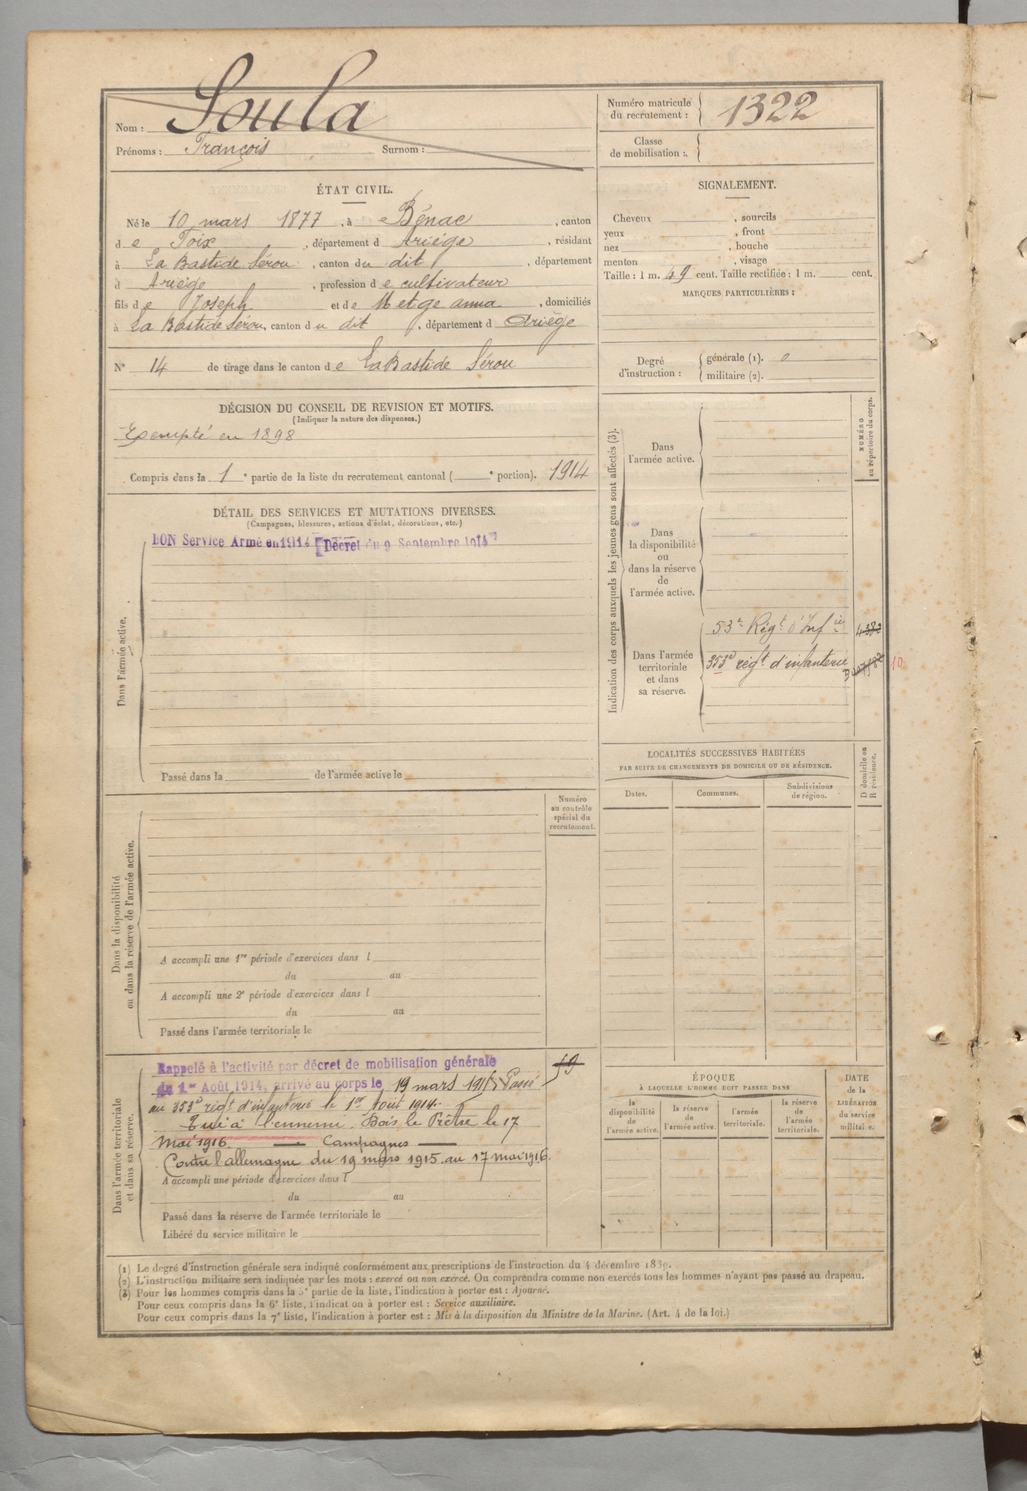 Nom : Soula
Prénoms : François Surnom :
Numéro matricule du recrutement : 1322
Classe de mobilisation :
ÉTAT CIVIL.
Né le 10 mars 1877, à Bénac, canton
de Foix, département d Ariège, résidant
à La Bastide Sérou, canton du dit, département
d Ariège, profession de cultivateur
fils de Joseph et de Metge anna, domiciliés
à La Bastide Sérou, canton du dit, département d Ariège
N° 14 de tirage dans le canton de La Bastide Sérou
SIGNALEMENT.
Cheveux , sourcils
yeux , front
nez , bouche
menton , visage
Taille : 1 m. 49 cent. Taille rectifiée : 1 m. cent.
MARQUES PARTICULIÈRES :
Degré d'instruction : générale (1). 0
militaire (2).
DÉCISION DU CONSEIL DE REVISION ET MOTIFS.
(Indiquer la nature des dispenses.)
Exempté en 1898
Compris dans la 1e partie de la liste du recrutement cantonal ( e portion). 1914
DÉTAIL DES SERVICES ET MUTATIONS DIVERSES.
(Campagnes, blessures, actions d'éclat, décorations, etc.)
BON Service Armé en 1914 [Décret du 9 Septembre 1914]
Dans l'armée active.
Passé dans la de l'armée active le
Indication des corps auxquels les jeunes gens sont affectés (3).
NUMÉRO au répertoire du corps.
Dans l'armée active.
Dans la disponibilité ou dans la réserve de l'armée active.
Dans l'armée territoriale et dans sa réserve.
53e Régt d'Infie
353e régt d'infanterie
10
LOCALITÉS SUCCESSIVES HABITÉES
PAR SUITE DE CHANGEMENTS DE DOMICILE OU DE RÉSIDENCE.
D domicile ou R résidence.
Dates. Communes. Subdivisions de région.
Numéro au contrôle spécial du recrutement.
Dans la disponibilité ou dans la réserve de l'armée active.
A accompli une 1re période d'exercices dans l
du au
A accompli une 2e période d'exercices dans l
du au
Passé dans l'armée territoriale le
Dans l'armée territoriale et dans sa réserve.
Rappelé à l'activité par décret de mobilisation générale
du 1er Août 1914, arrivé au corps le 19 mars 1915 Passé
au 353e régt d'infanterie le 1er Août 1914.
Tué à l'ennemi. Bois le Prêtre le 17
Mai 1916 — Campagnes —
Contre l'allemagne du 19 mars 1915 au 17 mai 1916.
A accompli une période d'exercices dans l
du au
Passé dans la réserve de l'armée territoriale le
Libéré du service militaire le
ÉPOQUE
À LAQUELLE L'HOMME DOIT PASSER DANS
la disponibilité de l'armée active.
la réserve de l'armée active.
l'armée territoriale.
la réserve de l'armée territoriale.
DATE de la LIBÉRATION du service militaire.
(1) Le degré d'instruction générale sera indiqué conformément aux prescriptions de l'instruction du 4 décembre 1889.
(2) L'instruction militaire sera indiquée par les mots : exercé ou non exercé. On comprendra comme non exercés tous les hommes n'ayant pas passé au drapeau.
(3) Pour les hommes compris dans la 5e partie de la liste, l'indication à porter est : Ajourné.
Pour ceux compris dans la 6e liste, l'indication à porter est : Service auxiliaire.
Pour ceux compris dans la 7e liste, l'indication à porter est : Mis à la disposition du Ministre de la Marine. (Art. 4 de la loi.)